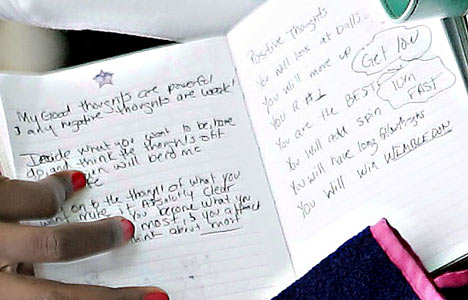 My Good thoughts are powerful
& any negative thoughts are weak!
Decide what you want to be, have
do, and think the thoughts off
will become
on to the thought of what you
want make it absolutely clear
you become what you
most, & you attract
think about most
Positive Thoughts
You will look at balls
You will move up
You R #1
You are the BEST
You will add spin
You will have long
You will win WIMBLEDON
Get low
turn
FAST